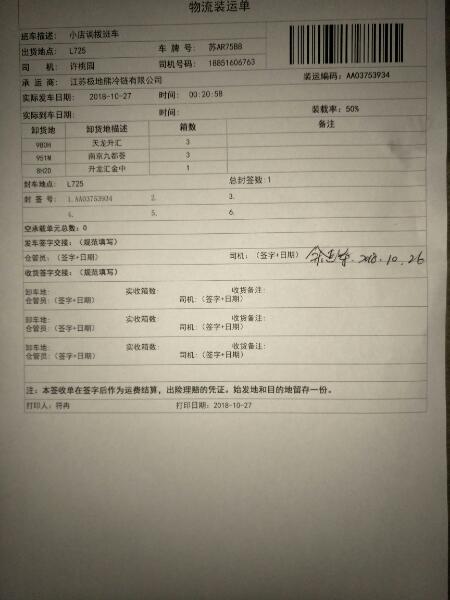 物流装运单
班车描述: 小店调拨班车
出货地点: L725 车 牌 号: 苏AR75B8
司 机: 许桃园 司机号码: 18851606763
承 运 商: 江苏极地熊冷链有限公司 装运编码: AA03753934
实际发车日期: 2018-10-27 时间: 00:20:58
实际到车日期: 时间: 装载率: 50%
卸货地 卸货地描述 箱数 备注
9B0H 天龙升汇 3
951W 南京九都荟 3
8H2D 升龙汇金中 1
封车地点: L725 总封签数:1
封 签 号: 1.AA03753934 2. 3.
4. 5. 6.
空承载单元总数: 0
发车签字交接: (规范填写)
仓管员: (签字+日期) 司机: (签字+日期) 2018.10.26
收货签字交接: (规范填写)
卸车地: 实收箱数: 收货备注:
仓管员: (签字+日期) 司机: (签字+日期)
卸车地: 实收箱数: 收货备注:
仓管员: (签字+日期) 司机: (签字+日期)
卸车地: 实收箱数: 收货备注:
仓管员: (签字+日期) 司机: (签字+日期)
注: 本签收单在签字后作为运费结算, 出险理赔的凭证。始发地和目的地留存一份。
打印人: 符冉 打印日期: 2018-10-27